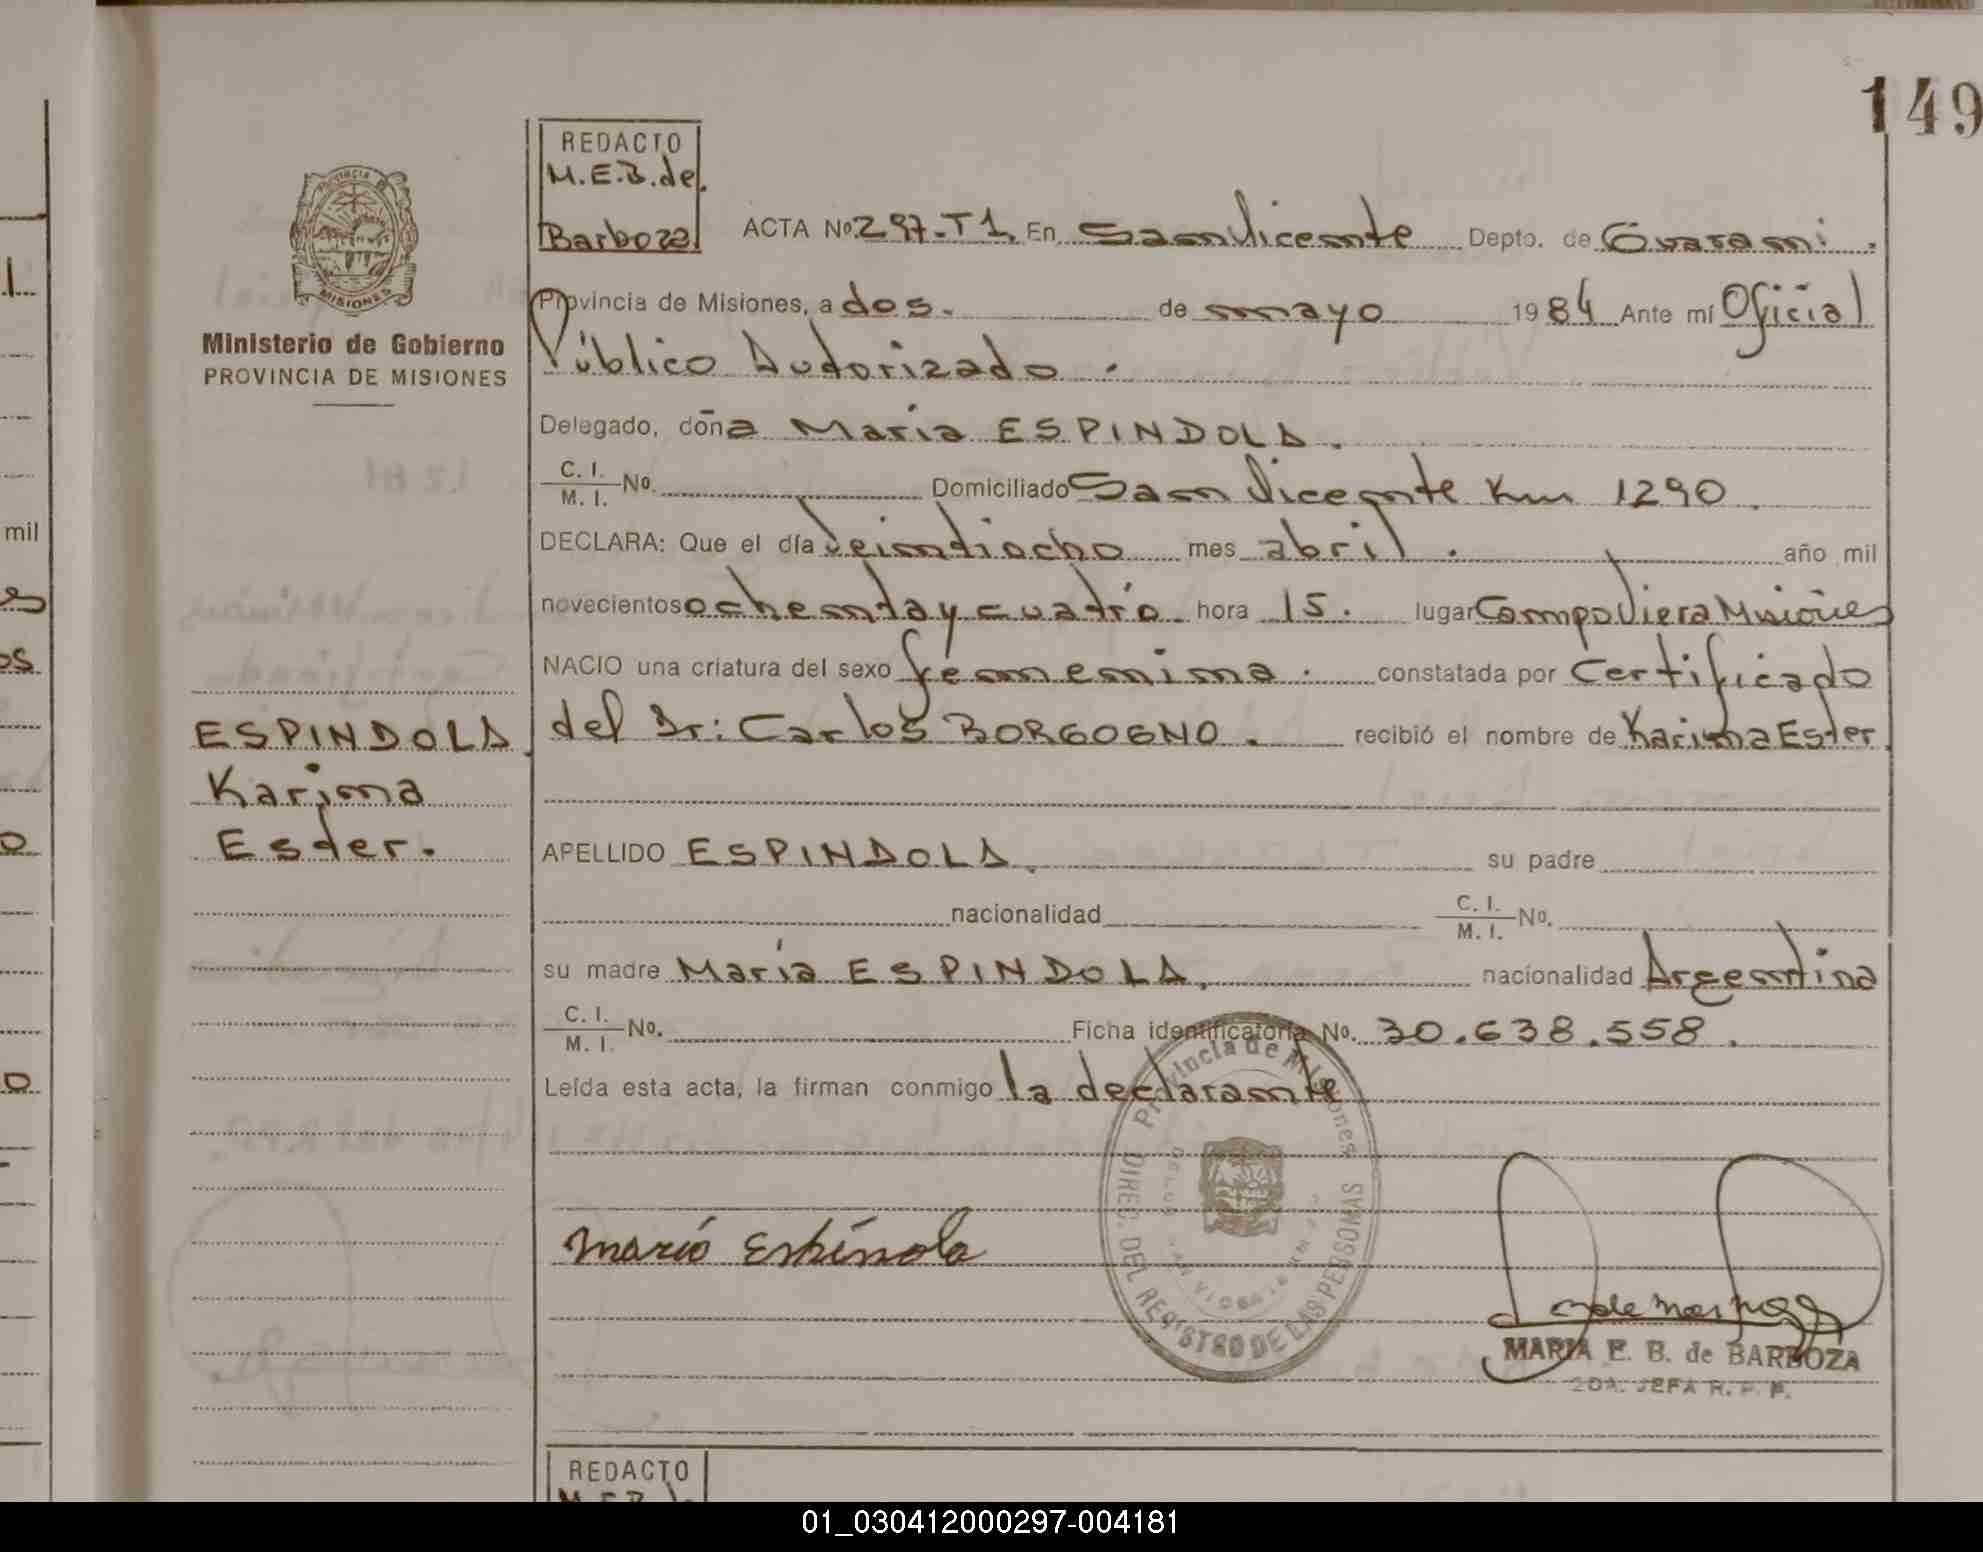 149
REDACTO
M.E.B. de
Barboza
PROVINCIA
MISIONES
Ministerio de Gobierno
PROVINCIA DE MISIONES
ACTA No. 297-T1. En San Vicente Depto. de Guaraní.
Provincia de Misiones, a dos. de mayo 1984 Ante mí Oficial
Público Autorizado.
Delegado, doña María ESPINDOLA.
C. I. / M. I. No. Domiciliado San Vicente Km 1290
DECLARA: Que el día veintiocho mes abril. año mil
novecientos ochenta y cuatro hora 15. lugar Campo Viera Misiones
NACIO una criatura del sexo femenina. constatada por Certificado
del Dr: Carlos BORGOGNO. recibió el nombre de Karina Ester
ESPINDOLA
Karina
Ester.
APELLIDO ESPINDOLA su padre
nacionalidad C. I. / M. I. No.
su madre María ESPINDOLA. nacionalidad Argentina
C. I. / M. I. No. Ficha identificatoria No. 30.638.558.
Leída esta acta, la firman conmigo la declarante
Provincia de Misiones
DIREC. DEL REGISTRO DE LAS PERSONAS
Mario Espinola
MARIA E. B. de BARBOZA
2DA. JEFA R. P. P.
REDACTO
M.E.B. de
mil
01_030412000297-004181